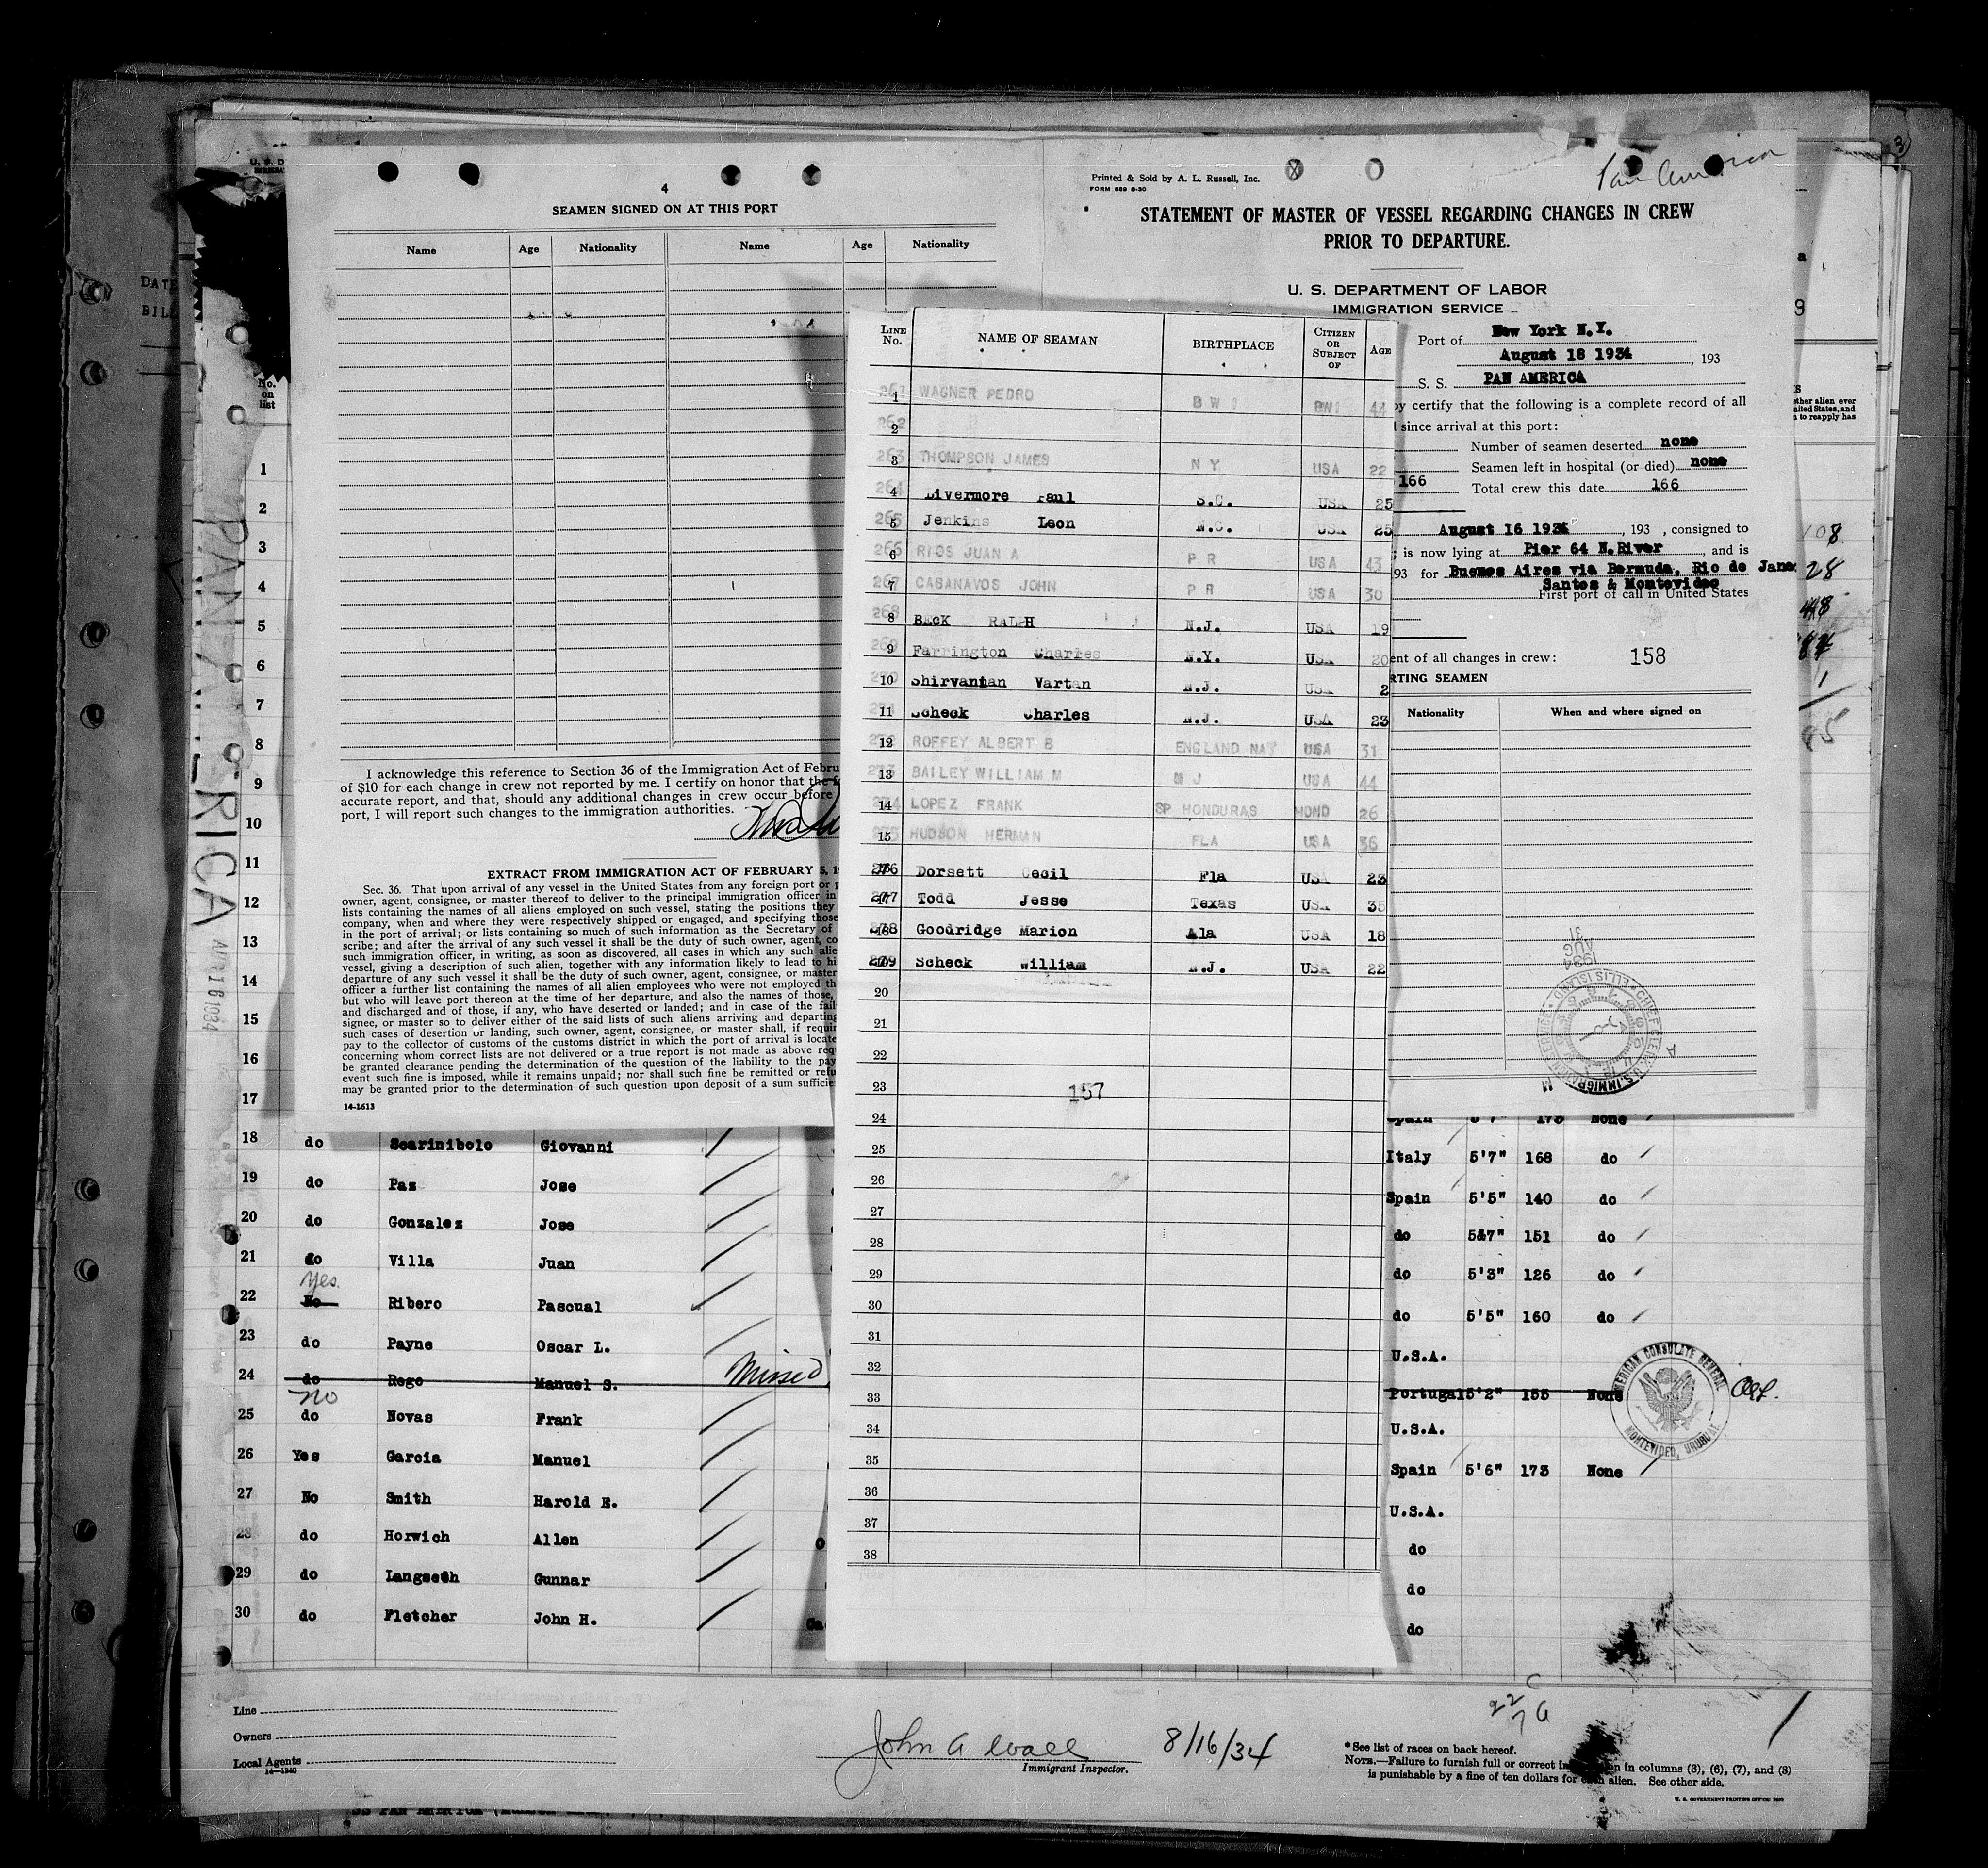 Pan America
U. S. D
DATE
BILL
4
SEAMEN SIGNED ON AT THIS PORT
Name Age Nationality Name Age Nationality
I acknowledge this reference to Section 36 of the Immigration Act of Febru
of $10 for each change in crew not reported by me. I certify on honor that the
accurate report, and that, should any additional changes in crew occur before
port, I will report such changes to the immigration authorities.
EXTRACT FROM IMMIGRATION ACT OF FEBRUARY 5, 19
Sec. 36. That upon arrival of any vessel in the United States from any foreign port or p
owner, agent, consignee, or master thereof to deliver to the principal immigration officer in
lists containing the names of all aliens employed on such vessel, stating the positions they
company, when and where they were respectively shipped or engaged, and specifying those
in the port of arrival; or lists containing so much of such information as the Secretary of
scribe; and after the arrival of any such vessel it shall be the duty of such owner, agent, co
such immigration officer, in writing, as soon as discovered, all cases in which any such alie
vessel, giving a description of such alien, together with any information likely to lead to hi
departure of any such vessel it shall be the duty of such owner, agent, consignee, or master
officer a further list containing the names of all alien employees who were not employed th
but who will leave port thereon at the time of her departure, and also the names of those,
and discharged and of those, if any, who have deserted or landed; and in case of the fail
signee, or master so to deliver either of the said lists of such aliens arriving and departing
such cases of desertion or landing, such owner, agent, consignee, or master shall, if requir
pay to the collector of customs of the customs district in which the port of arrival is locate
concerning whom correct lists are not delivered or a true report is not made as above req
be granted clearance pending the determination of the question of the liability to the pay
event such fine is imposed, while it remains unpaid; nor shall such fine be remitted or refu
may be granted prior to the determination of such question upon deposit of a sum sufficie
14-1613
Printed & Sold by A. L. Russell, Inc.
FORM 689 6-30
STATEMENT OF MASTER OF VESSEL REGARDING CHANGES IN CREW
PRIOR TO DEPARTURE.
U. S. DEPARTMENT OF LABOR
IMMIGRATION SERVICE
Port of New York N.Y.
August 18 1934, 193
S. S. PAN AMERICA
by certify that the following is a complete record of all
since arrival at this port:
Number of seamen deserted none
Seamen left in hospital (or died) none
166 Total crew this date 166
August 16 1934, 193 , consigned to
is now lying at Pier 64 N.River, and is
93 for Buenos Aires via Bermuda, Rio de Jane
Santos & Montevideo
First port of call in United States
ent of all changes in crew: 158
RTING SEAMEN
Nationality When and where signed on
1934
AUG
31
LINE No. NAME OF SEAMAN BIRTHPLACE CITIZEN OR SUBJECT OF AGE
1 WAGNER PEDRO B W I BWI 44
2
3 THOMPSON JAMES N Y USA 22
4 Livermore Paul S.C. USA 25
5 Jenkins Leon N.C. USA 25
6 RIOS JUAN A P R USA 43
7 CASANAVOS JOHN P R USA 30
8 BECK RALPH N.J. USA 19
9 Farrington Charles N.Y. USA 20
10 Shirvanian Vartan N.J. USA 2
11 Scheck Charles N.J. USA 23
12 ROFFEY ALBERT B ENGLAND NAT USA 31
13 BAILEY WILLIAM M N J USA 44
14 LOPEZ FRANK SP HONDURAS HOND 26
15 HUDSON HERMAN FLA USA 36
276 Dorsett Cecil Fla USA 23
277 Todd Jesse Texas USA 35
278 Goodridge Marion Ala USA 18
279 Scheck William N.J. USA 22
20
21
22
23 157
24
25
26
27
28
29
30
31
32
33
34
35
36
37
38
PAN AMERICA
AUG 16 1934
No. on list
1
2
3
4
5
6
7
8
9
10
11
12
13
14
15
16
17
Spain 5'7" 173 None
18 do Scarinibolo Giovanni Italy 5'7" 168 do
19 do Paz Jose Spain 5'5" 140 do
20 do Gonzalez Jose do 5&7" 151 do
21 do Villa Juan do 5'3" 126 do
Yes.
22 No Ribero Pascual do 5'5" 160 do
23 do Payne Oscar L. U.S.A.
24 do Rego Manuel S. Missed Portugal 5'2" 155 None
No
25 do Novas Frank U.S.A.
26 Yes Garcia Manuel Spain 5'6" 173 None
27 No Smith Harold E. U.S.A.
28 do Horwich Allen do
29 do Langseth Gunnar do
30 do Fletcher John H. do
AMERICAN CONSULATE GENERAL
MONTEVIDEO, URUGUAY
ther alien ever
nited States, and
to reapply has
28
Line
Owners
Local Agents
14-1240
John A Wall 8/16/34
Immigrant Inspector.
*See list of races on back hereof.
NOTE.—Failure to furnish full or correct in on in columns (3), (6), (7), and (8)
is punishable by a fine of ten dollars for each alien. See other side.
U. S. GOVERNMENT PRINTING OFFICE: 1932
SS PAN AMERICA